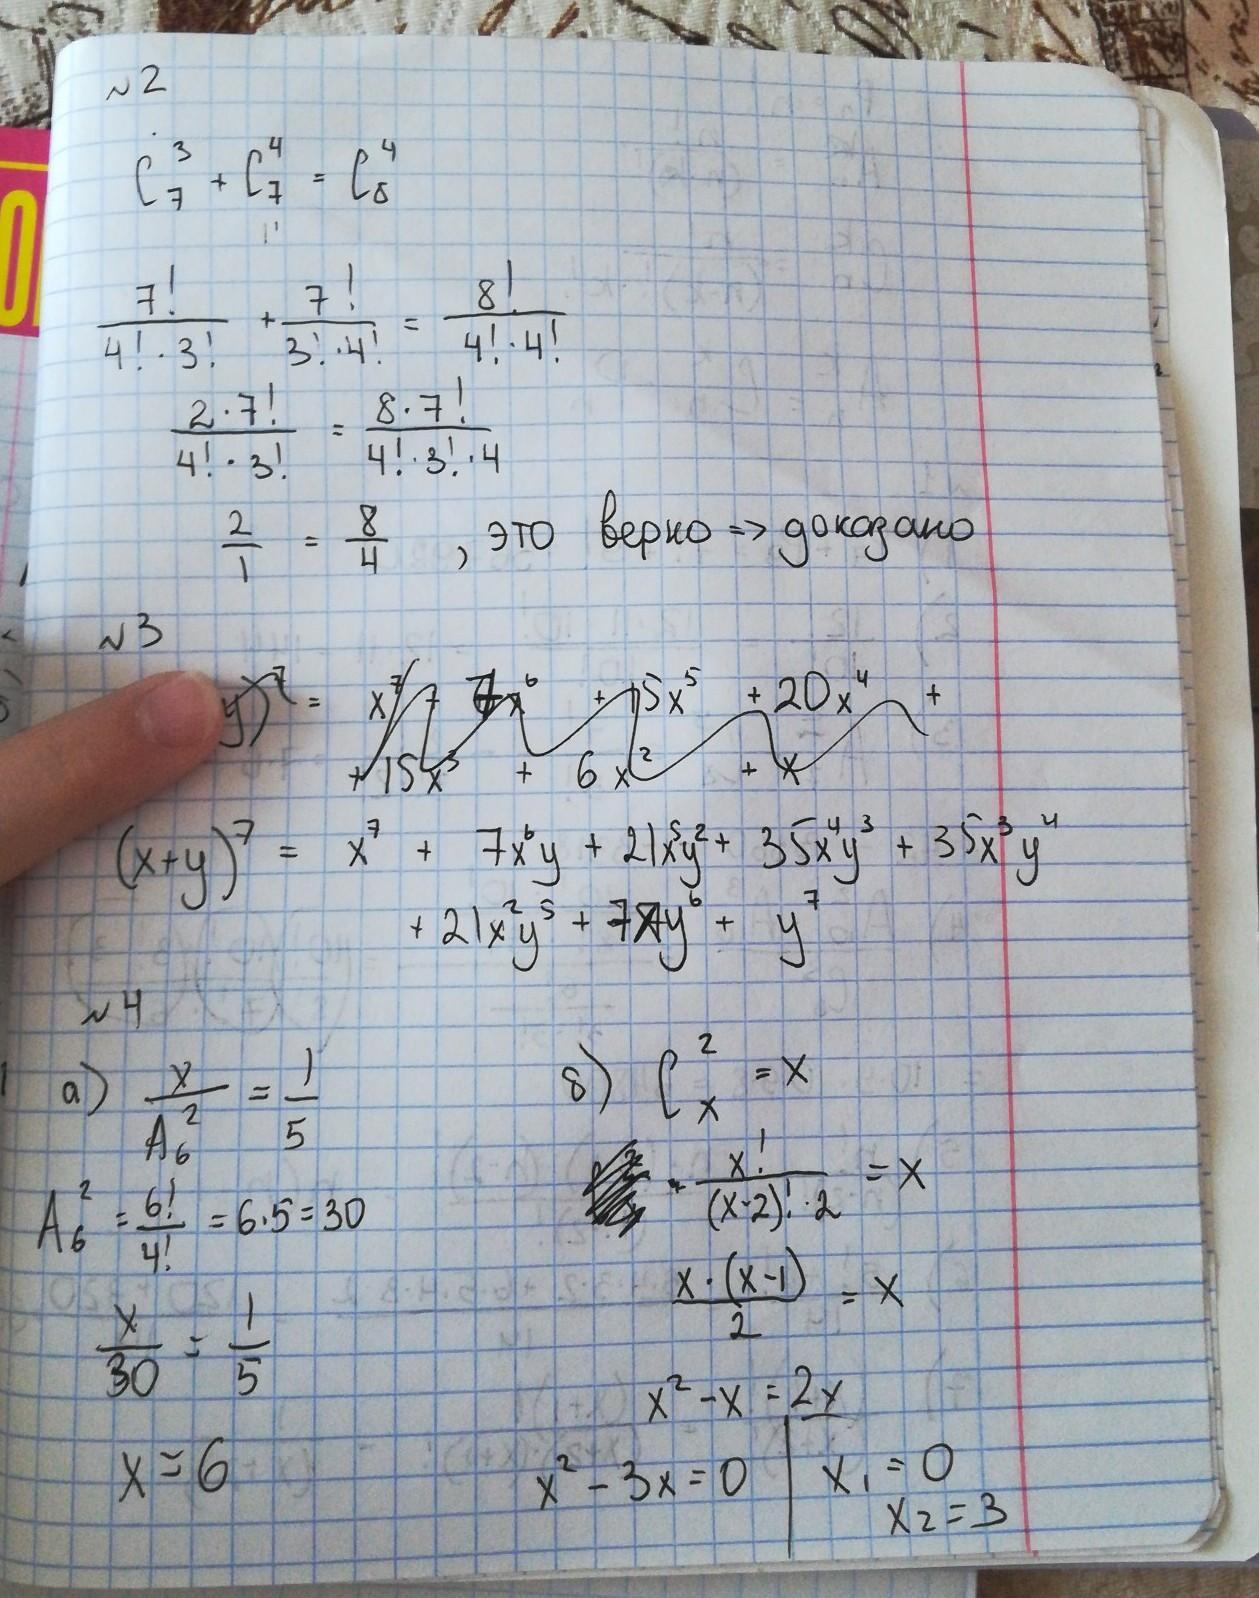 №2
C₇³ + C₇⁴ = C₈⁴
7!/(4!·3!) + 7!/(3!·4!) = 8!/(4!·4!)
(2·7!)/(4!·3!) = (8·7!)/(4!·3!·4)
2/1 = 8/4 , это верно => доказано
№3
y)⁷ = x⁷ + 7x⁶ + 15x⁵ + 20x⁴ +
+ 15x³ + 6x² + x
(x+y)⁷ = x⁷ + 7x⁶y + 21x⁵y² + 35x⁴y³ + 35x³y⁴
+ 21x²y⁵ + 7xy⁶ + y⁷
№4
а) x/A₆² = 1/5
A₆² = 6!/4! = 6·5 = 30
x/30 = 1/5
x = 6
б) Cₓ² = x
x!/((x-2)!·2) = x
x·(x-1)/2 = x
x² - x = 2x
x² - 3x = 0 | x₁ = 0
x₂ = 3